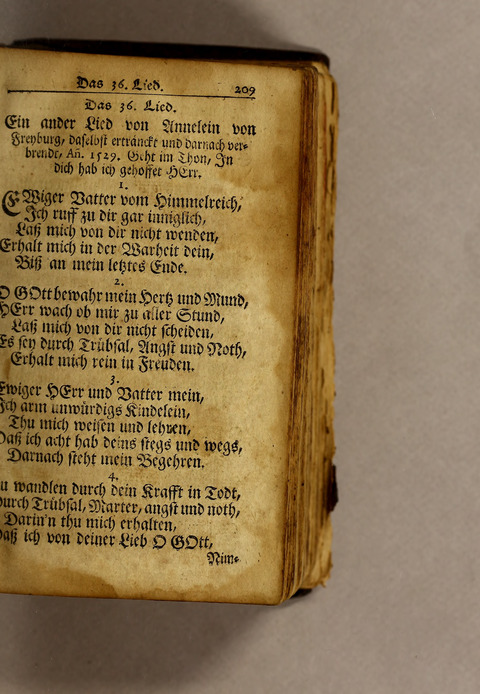 Das 36. Lied. 209
Das 36. Lied.
Ein ander Lied von Annelein von
Freyburg, daselbst ertränckt und darnach ver-
brendt, An. 1529. Geht im Thon, In
dich hab ich gehoffet HErr.
1.
EWiger Vatter vom Himmelreich,
Ich ruff zu dir gar inniglich,
Laß mich von dir nicht wenden,
Erhalt mich in der Warheit dein,
Biß an mein letztes Ende.
2.
O GOtt bewahr mein Hertz und Mund,
HErr wach ob mir zu aller Stund,
Laß mich von dir nicht scheiden,
Es sey durch Trübsal, Angst und Noth,
Erhalt mich rein in Freuden.
3.
Ewiger HErr und Vatter mein,
Ich arm unwürdigs Kindelein,
Thu mich weisen und lehren,
Daß ich acht hab deins stegs und wegs,
Darnach steht mein Begehren.
4.
Zu wandlen durch dein Krafft in Todt,
Durch Trübsal, Marter, angst und noth,
Darin'n thu mich erhalten,
Daß ich von deiner Lieb O GOtt,
Nim-